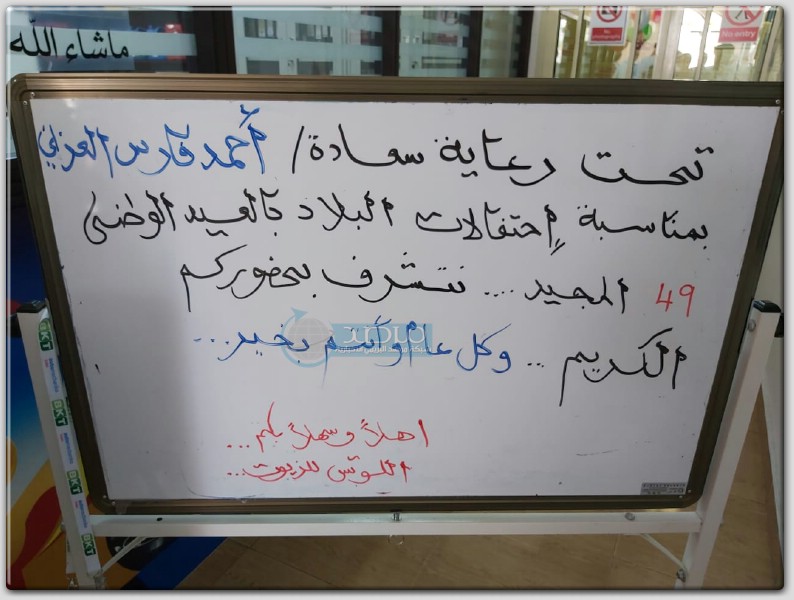 ماشاء الله
No entry
تحت رعاية سعادة/ أحمد فارس العزاني
بمناسبة إحتفالات البلاد بالعيد الوطني
49 المجيد .... نتشرف بحضوركم
الكريم .. وكل عام وأنتم بخير ...
اهلاً وسهلاً بكم ...
اللوتس للزيوت ...
BKT
BKT
BKT
BKT